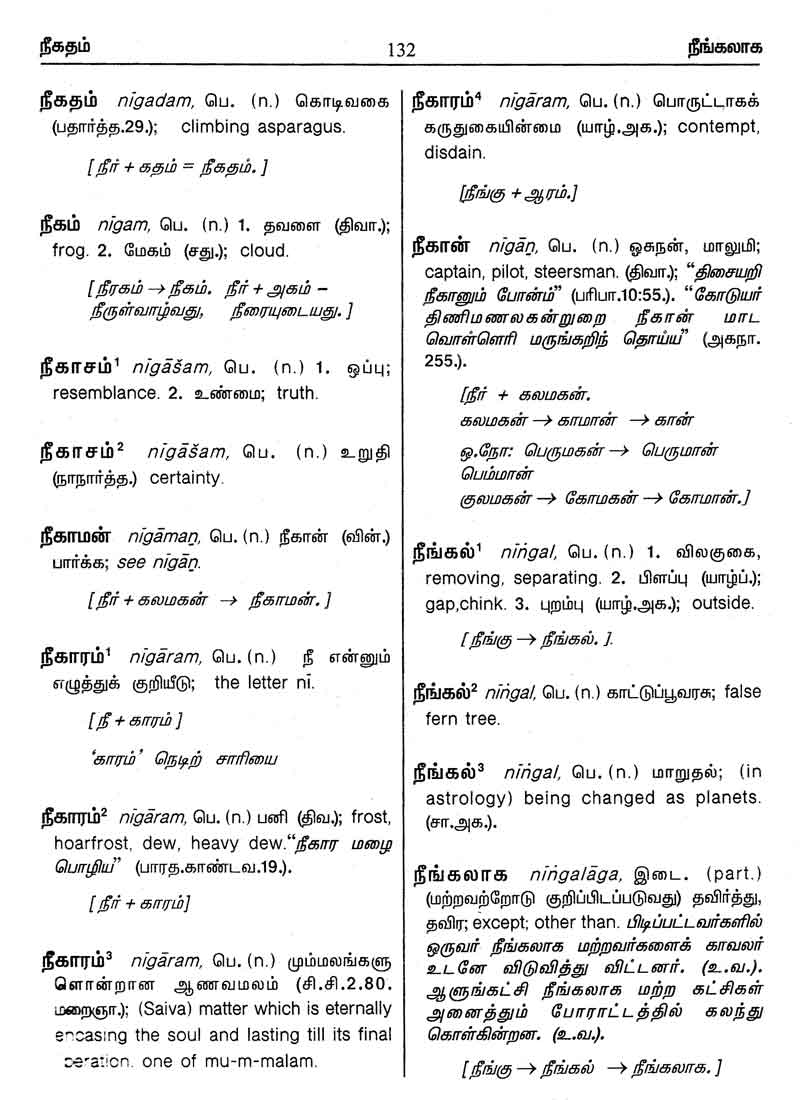 நீகதம்
132
நீங்கலாக
நீகதம் nīgadam, பெ. (n.) கொடிவகை
(பதார்த்த.29.); climbing asparagus.
[நீர் + கதம் = நீகதம். ]
நீகம் nīgam, பெ. (n.) 1. தவளை (திவா.);
frog. 2. மேகம் (சது.); cloud.
[நீரகம் → நீகம். நீர் + அகம் –
நீருள்வாழ்வது, நீரையுடையது. ]
நீகாசம்¹ nīgāšam, பெ. (n.) 1. ஒப்பு;
resemblance. 2. உண்மை; truth.
நீகாசம்² nīgāšam, பெ. (n.) உறுதி
(நாநார்த்த.) certainty.
நீகாமன் nīgāmaṉ, பெ. (n.) நீகான் (வின்.)
பார்க்க; see nīgāṉ.
[நீர் + கலமகன் → நீகாமன். ]
நீகாரம்¹ nīgāram, பெ. (n.) நீ என்னும்
எழுத்துக் குறியீடு; the letter nī.
[நீ + காரம் ]
‘காரம்’ நெடிற் சாரியை
நீகாரம்² nīgāram, பெ. (n.) பனி (திவ.); frost,
hoarfrost, dew, heavy dew.“நீகார மழை
பொழிய” (பாரத.காண்டவ.19.).
[நீர் + காரம்]
நீகாரம்³ nīgāram, பெ. (n.) மும்மலங்களு
ளொன்றான ஆணவமலம் (சி.சி.2.80.
மறைஞா.); (Saiva) matter which is eternally
encasing the soul and lasting till its final
one of mu-m-malam.
நீகாரம்⁴ nīgāram, பெ. (n.) பொருட்டாகக்
கருதுகையின்மை (யாழ்.அக.); contempt,
disdain.
[நீங்கு + ஆரம்.]
நீகான் nīgāṉ, பெ. (n.) ஒசுநன், மாலுமி;
captain, pilot, steersman. (திவா.); “திசையறி
நீகானும் போன்ம்” (பரிபா.10:55.). “கோடுயர்
திணிமணலகன்றுறை நீகான் மாட
வொள்ளெரி மருங்கறிந் தொய்ய” (அகநா.
255.).
[நீர் + கலமகன்.
கலமகன் → காமான் → கான்
ஒ.நோ: பெருமகன் → பெருமான்
பெம்மான்
குலமகன் → கோமகன் → கோமான்.]
நீங்கல்¹ nīṅgal, பெ. (n.) 1. விலகுகை,
removing, separating. 2. பிளப்பு (யாழ்ப்.);
gap,chink. 3. புறம்பு (யாழ்.அக.); outside.
[நீங்கு → நீங்கல். ].
நீங்கல்² nīṅgal, பெ. (n.) காட்டுப்பூவரசு; false
fern tree.
நீங்கல்³ nīṅgal, பெ. (n.) மாறுதல்; (in
astrology) being changed as planets.
(சா.அக.).
நீங்கலாக nīṅgalāga, இடை. (part.)
(மற்றவற்றோடு குறிப்பிடப்படுவது) தவிர்த்து,
தவிர; except; other than. பிடிப்பட்டவர்களில்
ஒருவர் நீங்கலாக மற்றவர்களைக் காவலர்
உடனே விடுவித்து விட்டனர். (உ.வ.).
ஆளுங்கட்சி நீங்கலாக மற்ற கட்சிகள்
அனைத்தும் போராட்டத்தில் கலந்து
கொள்கின்றன. (உ.வ.).
[நீங்கு → நீங்கல் → நீங்கலாக. ]